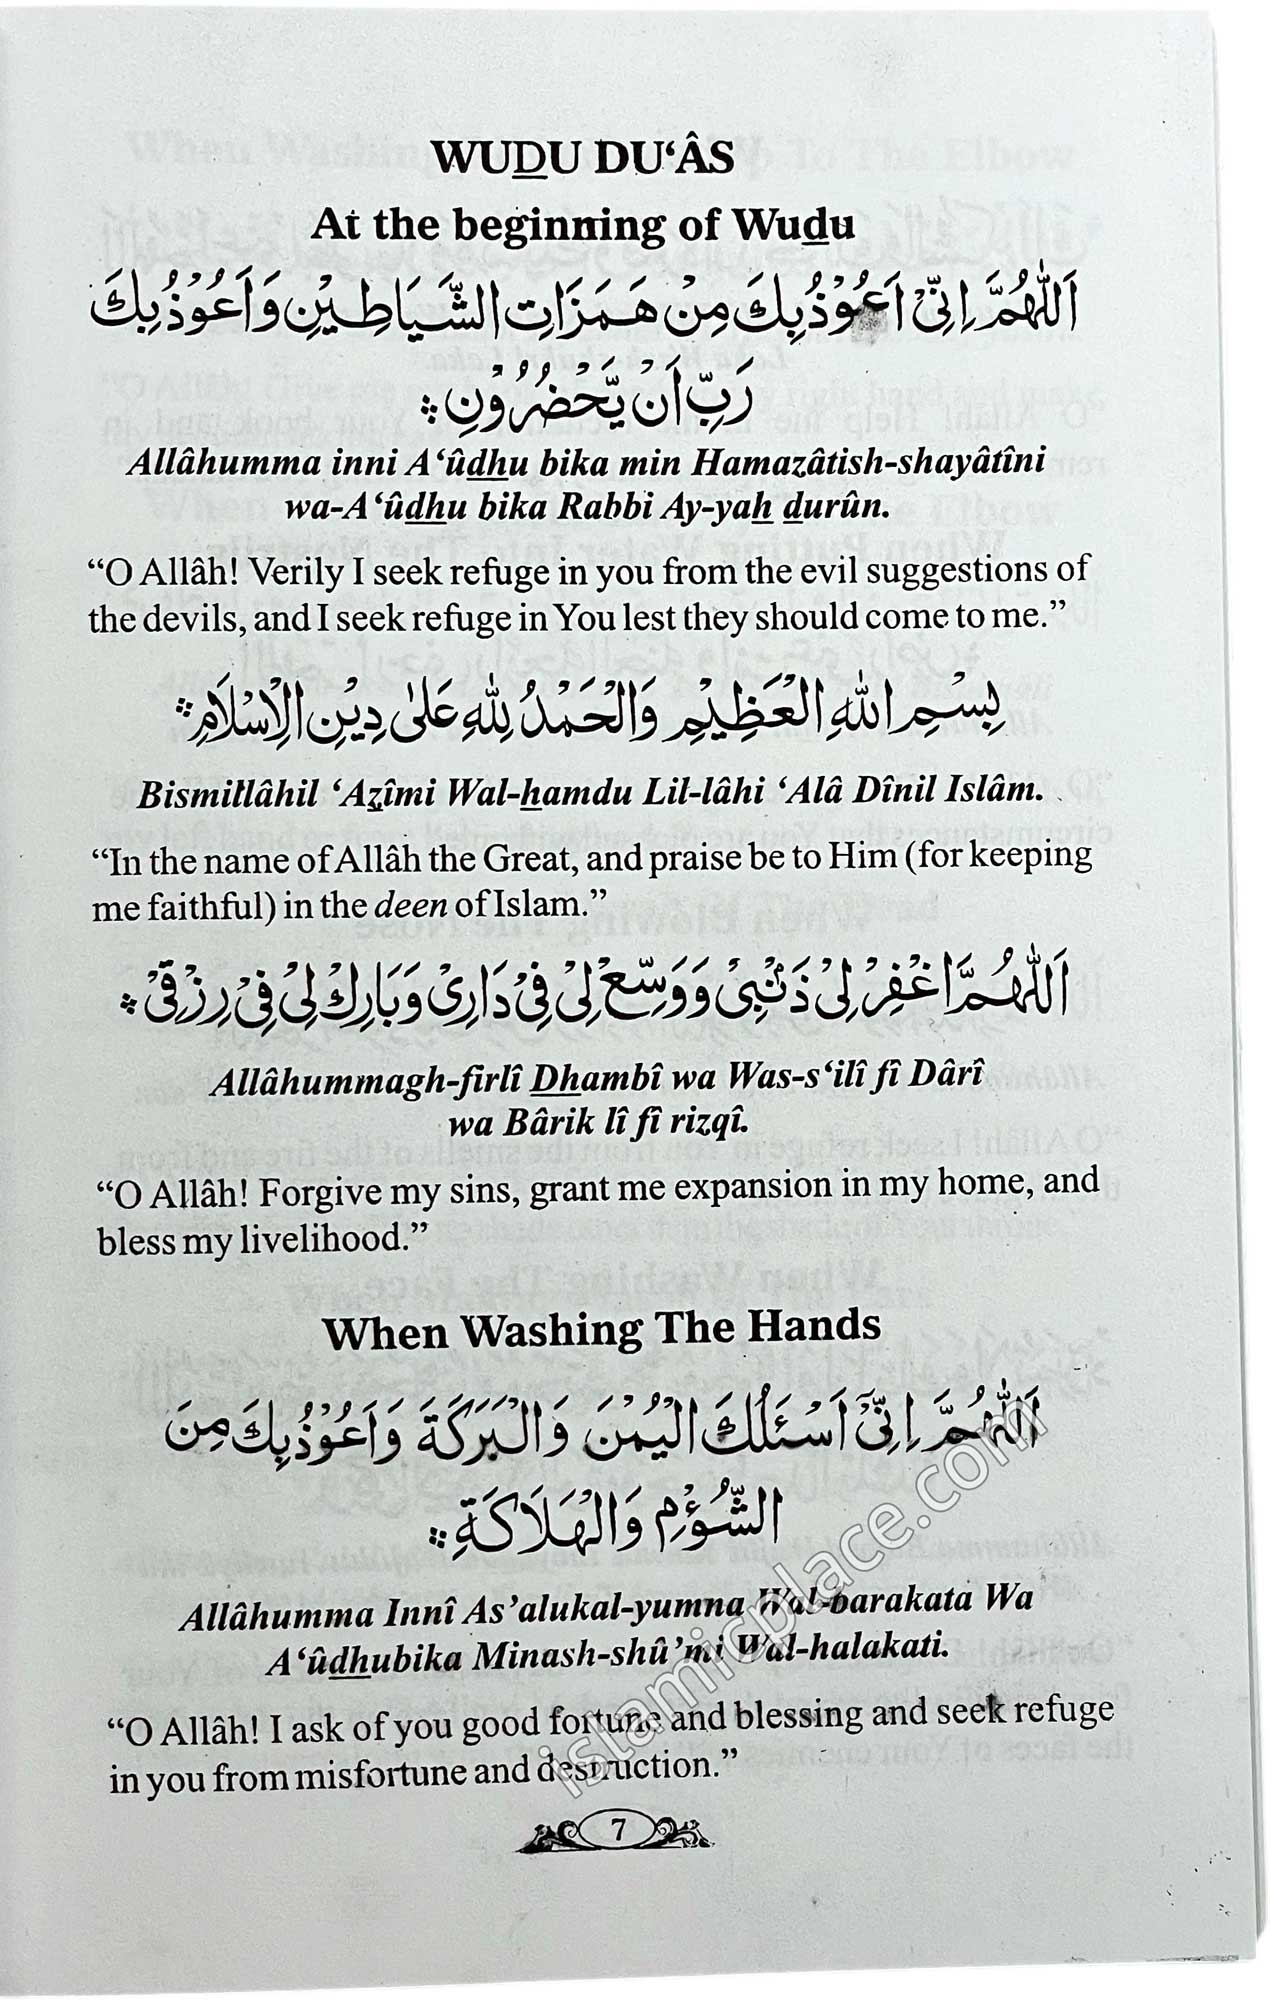 WUḎU DU‘ÂS
At the beginning of Wuḏu
اَللّٰهُمَّ اِنِّىْ اَعُوْذُ بِكَ مِنْ هَمَزَاتِ الشَّيَاطِيْنِ وَاَعُوْذُ بِكَ
رَبِّ اَنْ يَّحْضُرُوْنِ
Allâhumma inni A‘ûdhu bika min Hamazâtish-shayâtîni
wa-A‘ûdhu bika Rabbi Ay-yaẖ ḏurûn.
“O Allâh! Verily I seek refuge in you from the evil suggestions of
the devils, and I seek refuge in You lest they should come to me.”
بِسْمِ اللّٰهِ الْعَظِيْمِ وَالْحَمْدُ لِلّٰهِ عَلٰى دِيْنِ الْاِسْلَامِ
Bismillâhil ‘Aẕîmi Wal-ẖamdu Lil-lâhi ‘Alâ Dînil Islâm.
“In the name of Allâh the Great, and praise be to Him (for keeping
me faithful) in the deen of Islam.”
اَللّٰهُمَّ اغْفِرْ لِىْ ذَنْبِىْ وَوَسِّعْ لِىْ فِىْ دَارِىْ وَبَارِكْ لِىْ فِىْ رِزْقِىْ
Allâhummagh-firlî Dhambî wa Was-s‘ilî fî Dârî
wa Bârik lî fî rizqî.
“O Allâh! Forgive my sins, grant me expansion in my home, and
bless my livelihood.”
When Washing The Hands
اَللّٰهُمَّ اِنِّىْ اَسْئَلُكَ الْيُمْنَ وَالْبَرَكَةَ وَاَعُوْذُ بِكَ مِنَ
الشُّؤْمِ وَالْهَلَاكَةِ
Allâhumma Innî As’alukal-yumna Wal-barakata Wa
A‘ûdhubika Minash-shû’mi Wal-halakati.
“O Allâh! I ask of you good fortune and blessing and seek refuge
in you from misfortune and destruction.”
7
islamicplace.com